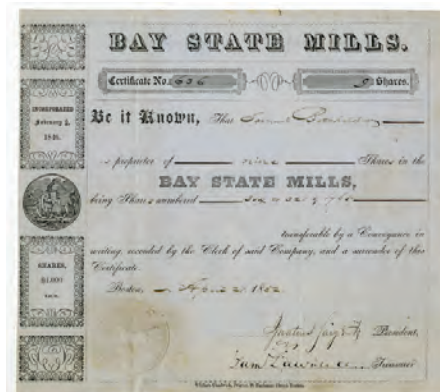 BAY STATE MILLS.
Certificate No. 636 9 Shares.
INCORPORATED
February 5,
1846.
Be it Known, That Samuel
is proprietor of nine Shares in the
BAY STATE MILLS,
being Shares numbered
transferable by a Conveyance in
writing, recorded by the Clerk of said Company, and a surrender of this
Certificate.
SHARES,
$1,000
EACH.
Boston, April 21 1852.
President,
Saml Lawrence Treasurer